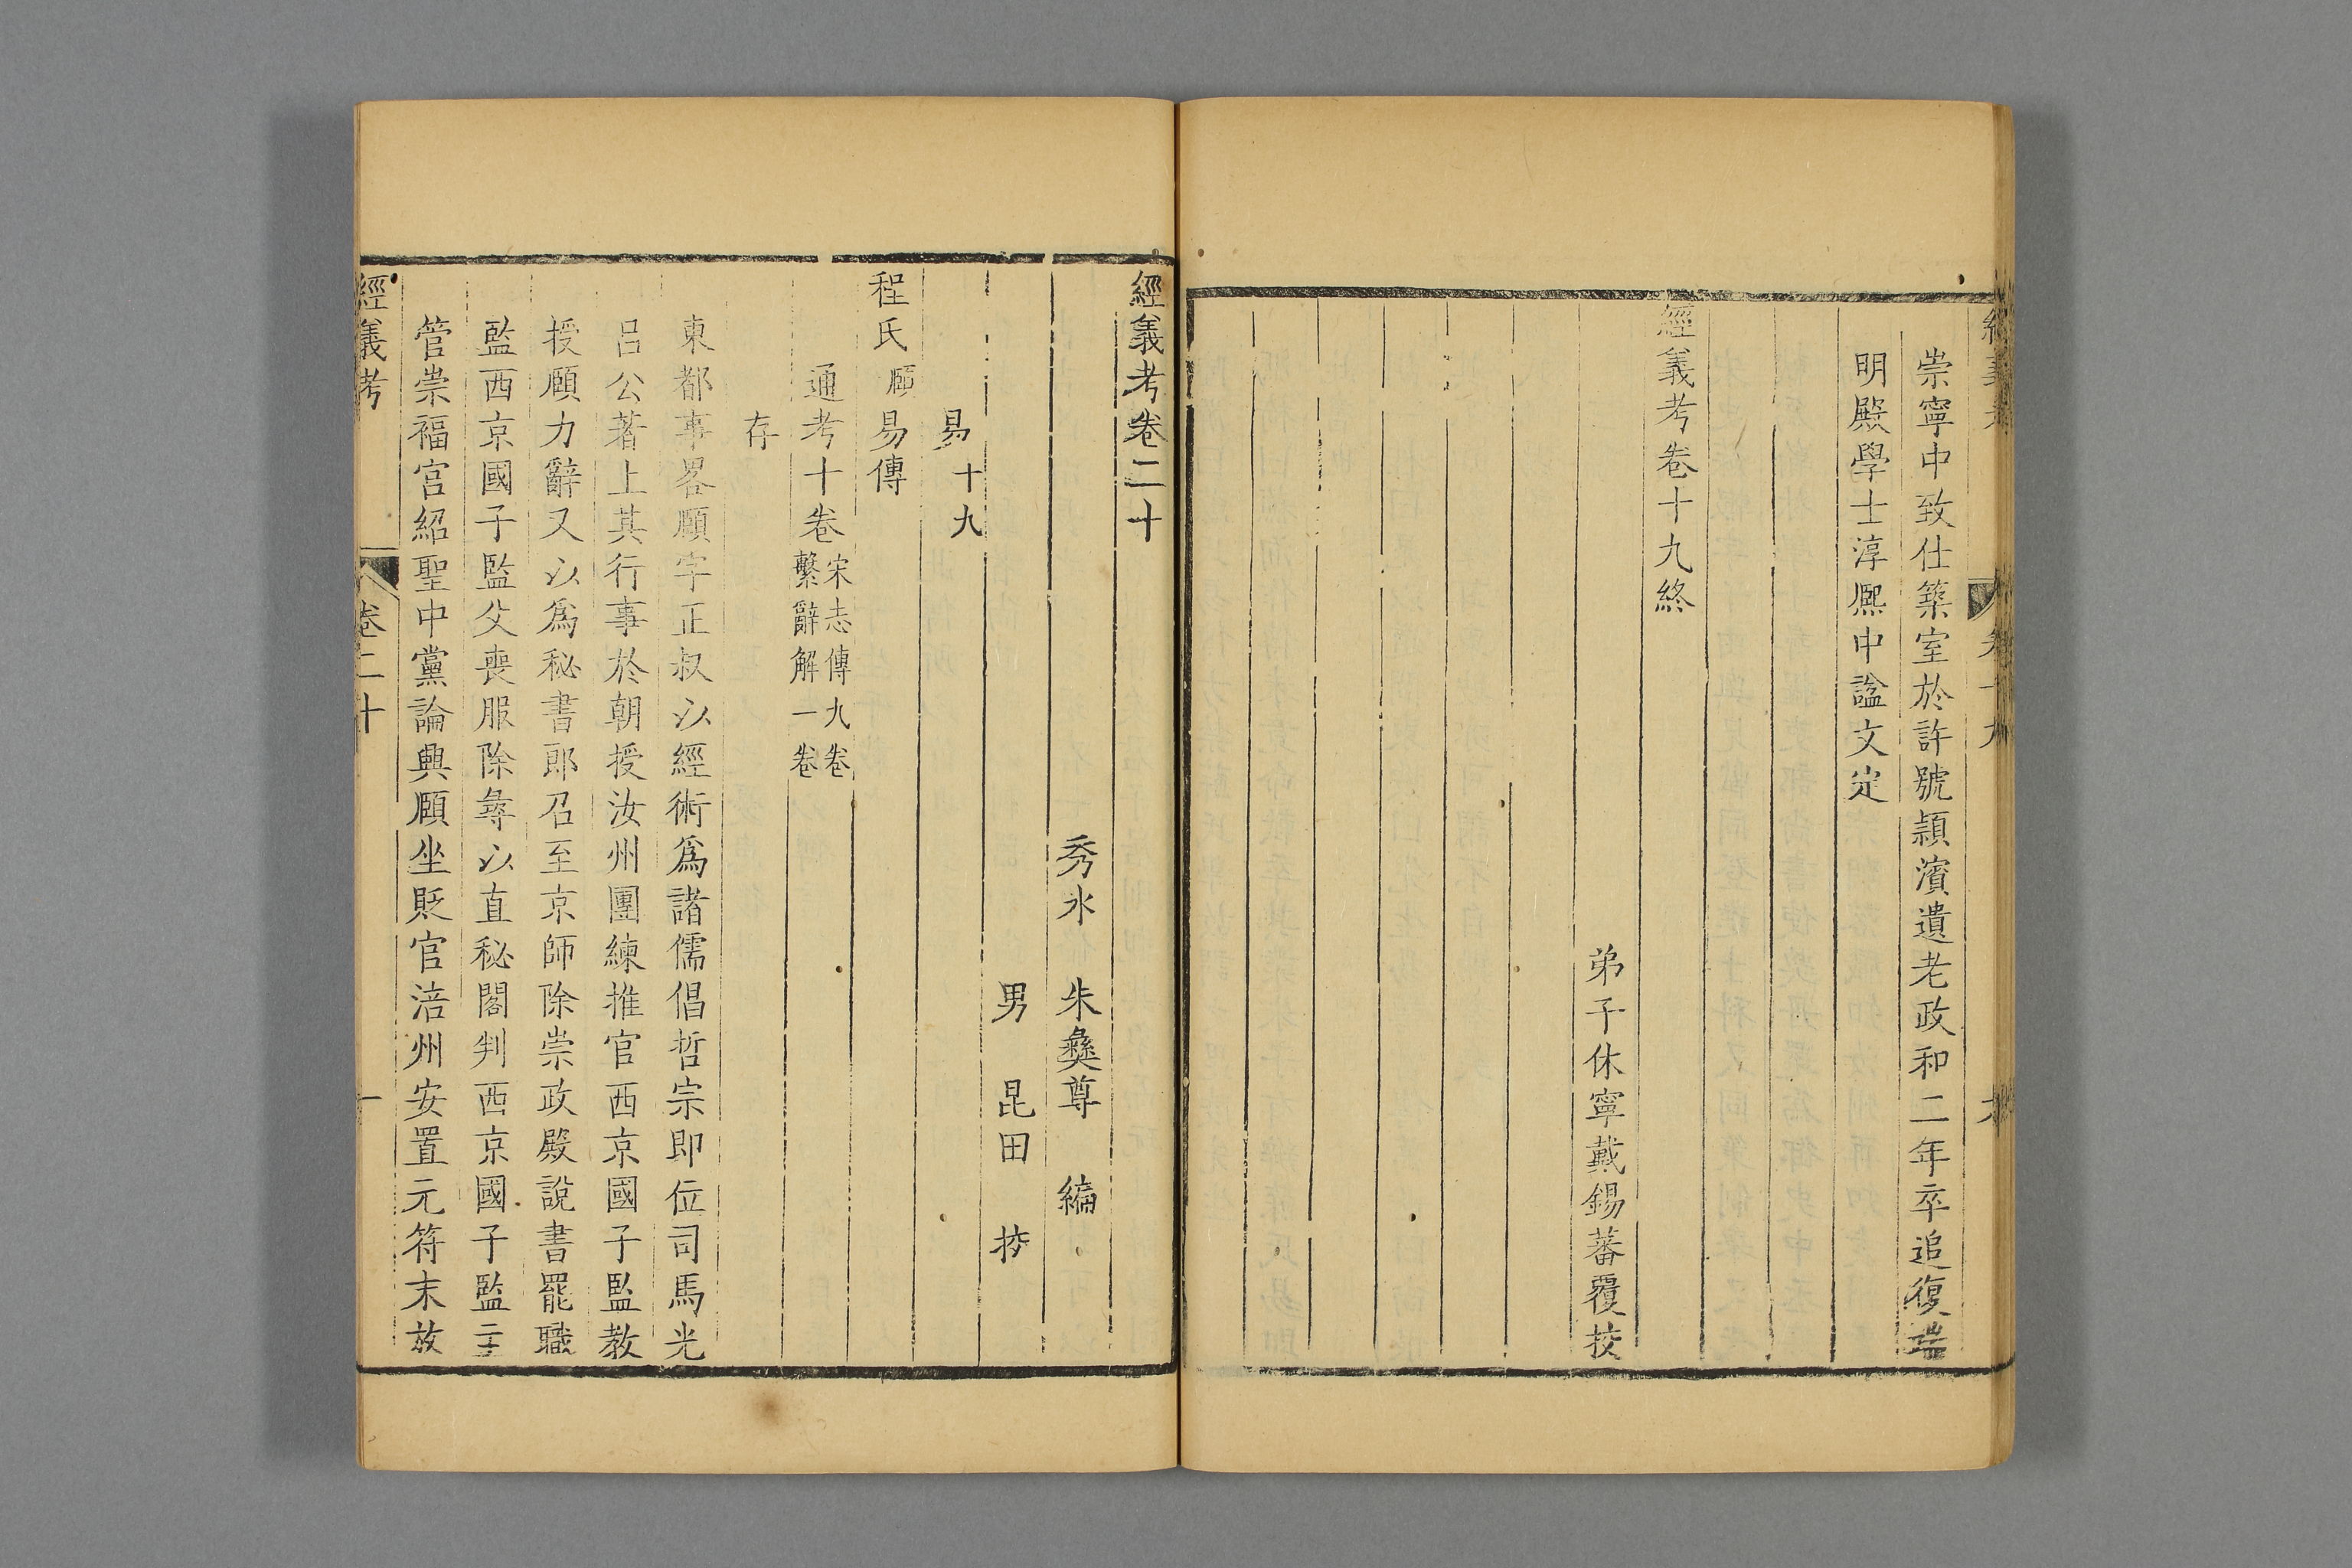 崇寧中致仕築室於許號潁濱遺老政和二年卒追復端
明殿學士淳熙中諡文定
經義考卷十九終
弟子休寧戴錫蕃覆挍
經義考卷二十
秀水 朱彝尊 編
男 昆田 挍
易十九
程氏頤易傳
通考十卷宋志傳九卷
繫辭解一卷
存
東都事畧頤字正叔以經術爲諸儒倡哲宗即位司馬光
呂公著上其行事於朝授汝州團練推官西京國子監教
授頤力辭又以爲秘書郎召至京師除崇政殿說書罷職
監西京國子監父喪服除尋以直秘閣判西京國子監主
管崇福宮紹聖中黨論興頤坐貶官涪州安置元符末放
經義考
卷二十
一